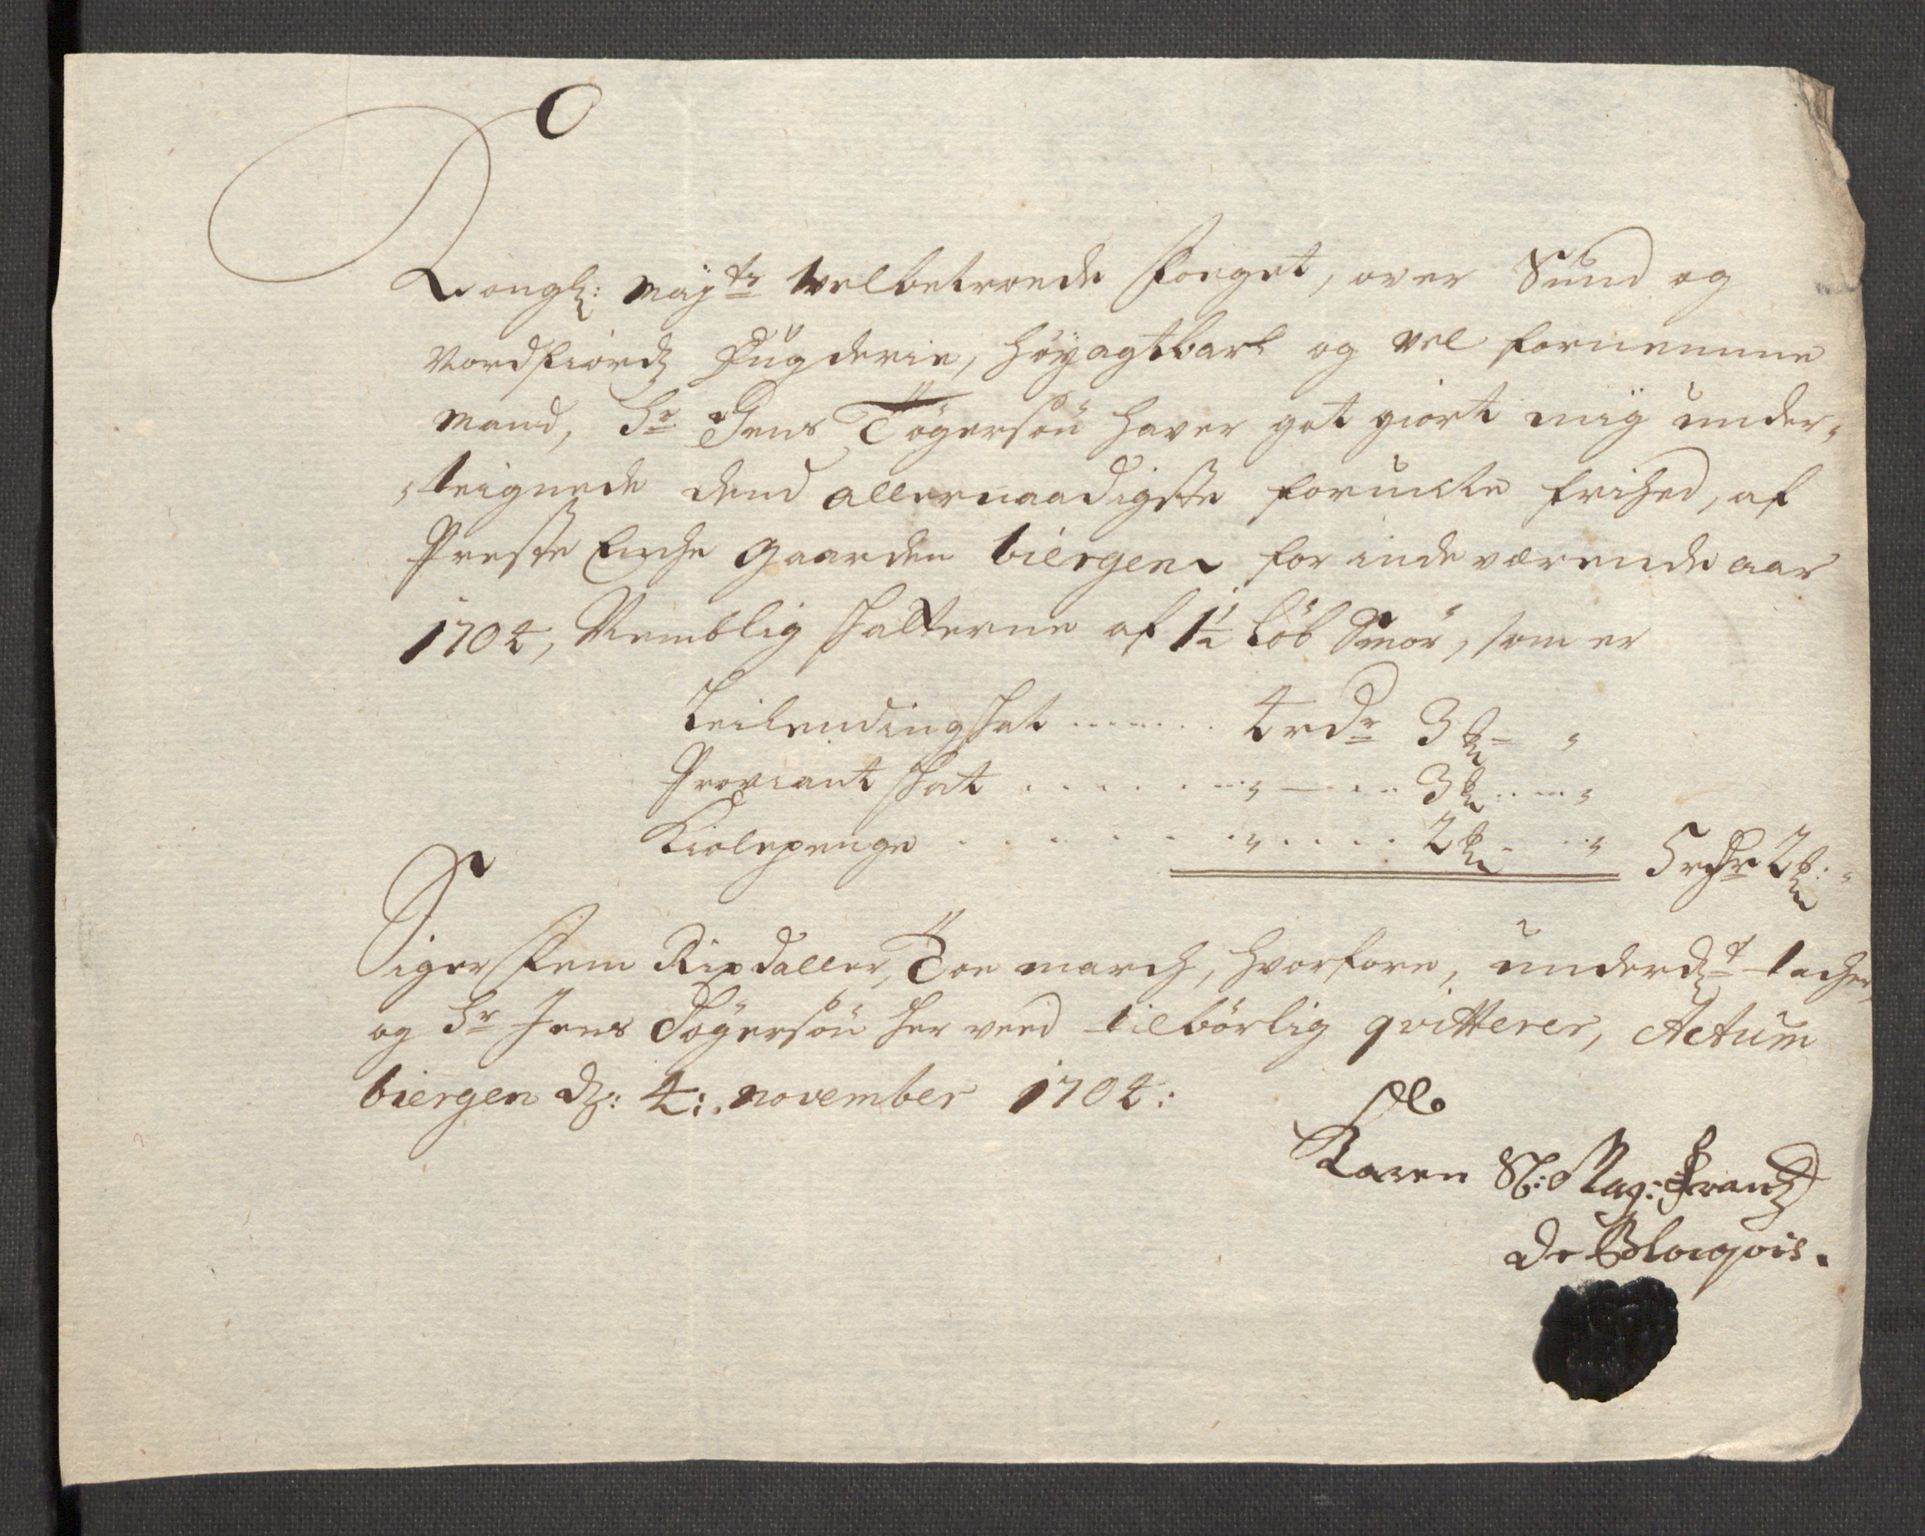 Kongl: Maÿts Velbetroede Foeget, over Sund og
Nordfiordz Fugderie, höÿagtbare og vel fornemme
Mand, Sr Jens Tögersön haver got giort mig under-
teignede dend allernaadigste forundte frihed, af
Preste Enche gaarden biergen for indeværende aar
1704, Nemblig schatterne af 1½ löb Smör, som er
Leilendingschat ....... 4 rdr 3 mk - "
Proviant schat ....... " - .. 3 mk .. "
Kiolepenge ....... " .... 2 mk .. " 5 rdr 2 mk: "
Siger Fem Rixdaller, Toe march, hvorfore, underdt tacher,
og Sr Jens Tögersön her veed tilbörlig qvitterer, Actum
biergen dz: 4: november 1704:
Karen Sl: Mag: Frantz
de Blocqvis.